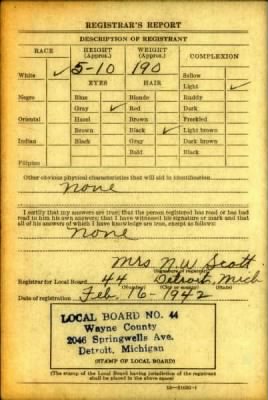 REGISTRAR'S REPORT
DESCRIPTION OF REGISTRANT
RACE HEIGHT (Approx.) WEIGHT (Approx.) COMPLEXION
White ✓ 5-10 190 Sallow
EYES HAIR Light ✓
Negro Blue Blonde Ruddy
Gray ✓ Red Dark
Oriental Hazel Brown Freckled
Brown Black ✓ Light brown
Indian Black Gray Dark brown
Bald Black
Filipino
Other obvious physical characteristics that will aid in identification
None
I certify that my answers are true; that the person registered has read or has had
read to him his own answers; that I have witnessed his signature or mark and that
all of his answers of which I have knowledge are true, except as follows:
None
Mrs N.W Scott
(Signature of registrar)
Registrar for Local Board 44 Detroit, Mich
(Number) (City or county) (State)
Date of registration Feb. 16- 1942
LOCAL BOARD NO. 44
Wayne County
2046 Springwells Ave.
Detroit, Michigan
(STAMP OF LOCAL BOARD)
(The stamp of the Local Board having jurisdiction of the registrant
shall be placed in the above space)